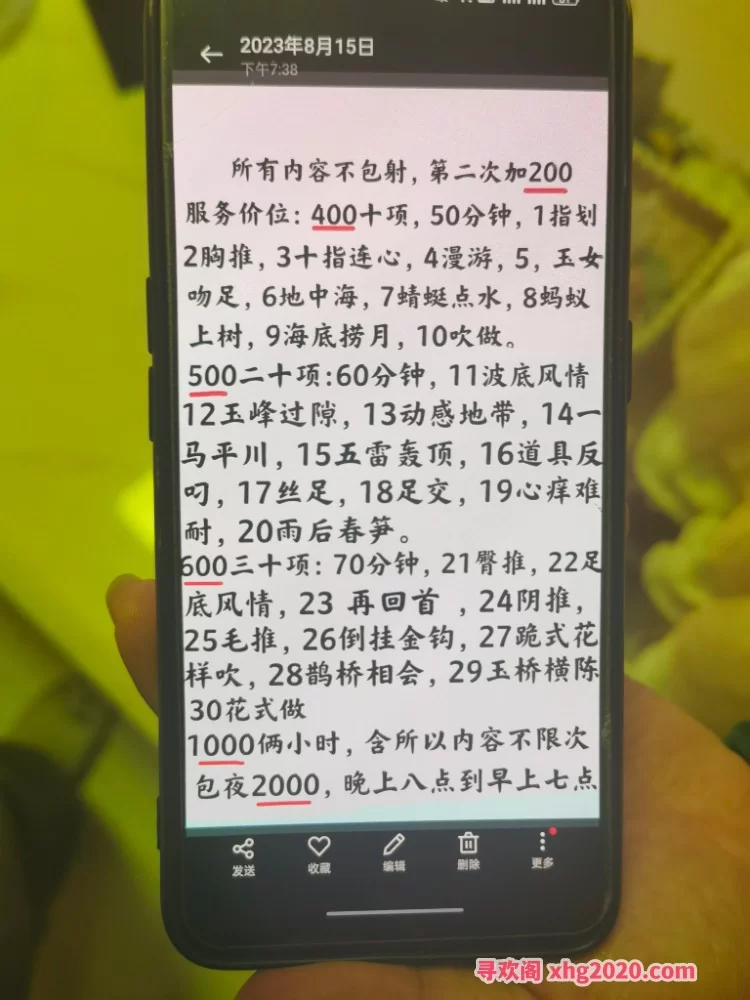 2023年8月15日
下午7:38
所有内容不包射，第二次加200
服务价位：400十项，50分钟，1指划
2胸推，3十指连心，4漫游，5，玉女
吻足，6地中海，7蜻蜓点水，8蚂蚁
上树，9海底捞月，10吹做。
500二十项:60分钟，11波底风情
12玉峰过隙，13动感地带，14一
马平川，15五雷轰顶，16道具反
叼，17丝足，18足交，19心痒难
耐，20雨后春笋。
600三十项：70分钟，21臀推，22足
底风情，23 再回首 ，24阴推，
25毛推，26倒挂金钩，27跪式花
样吹，28鹊桥相会，29玉桥横陈
30花式做
1000俩小时，含所以内容不限次
包夜2000，晚上八点到早上七点
发送 收藏 编辑 删除 更多
寻欢阁 xhg2020.com